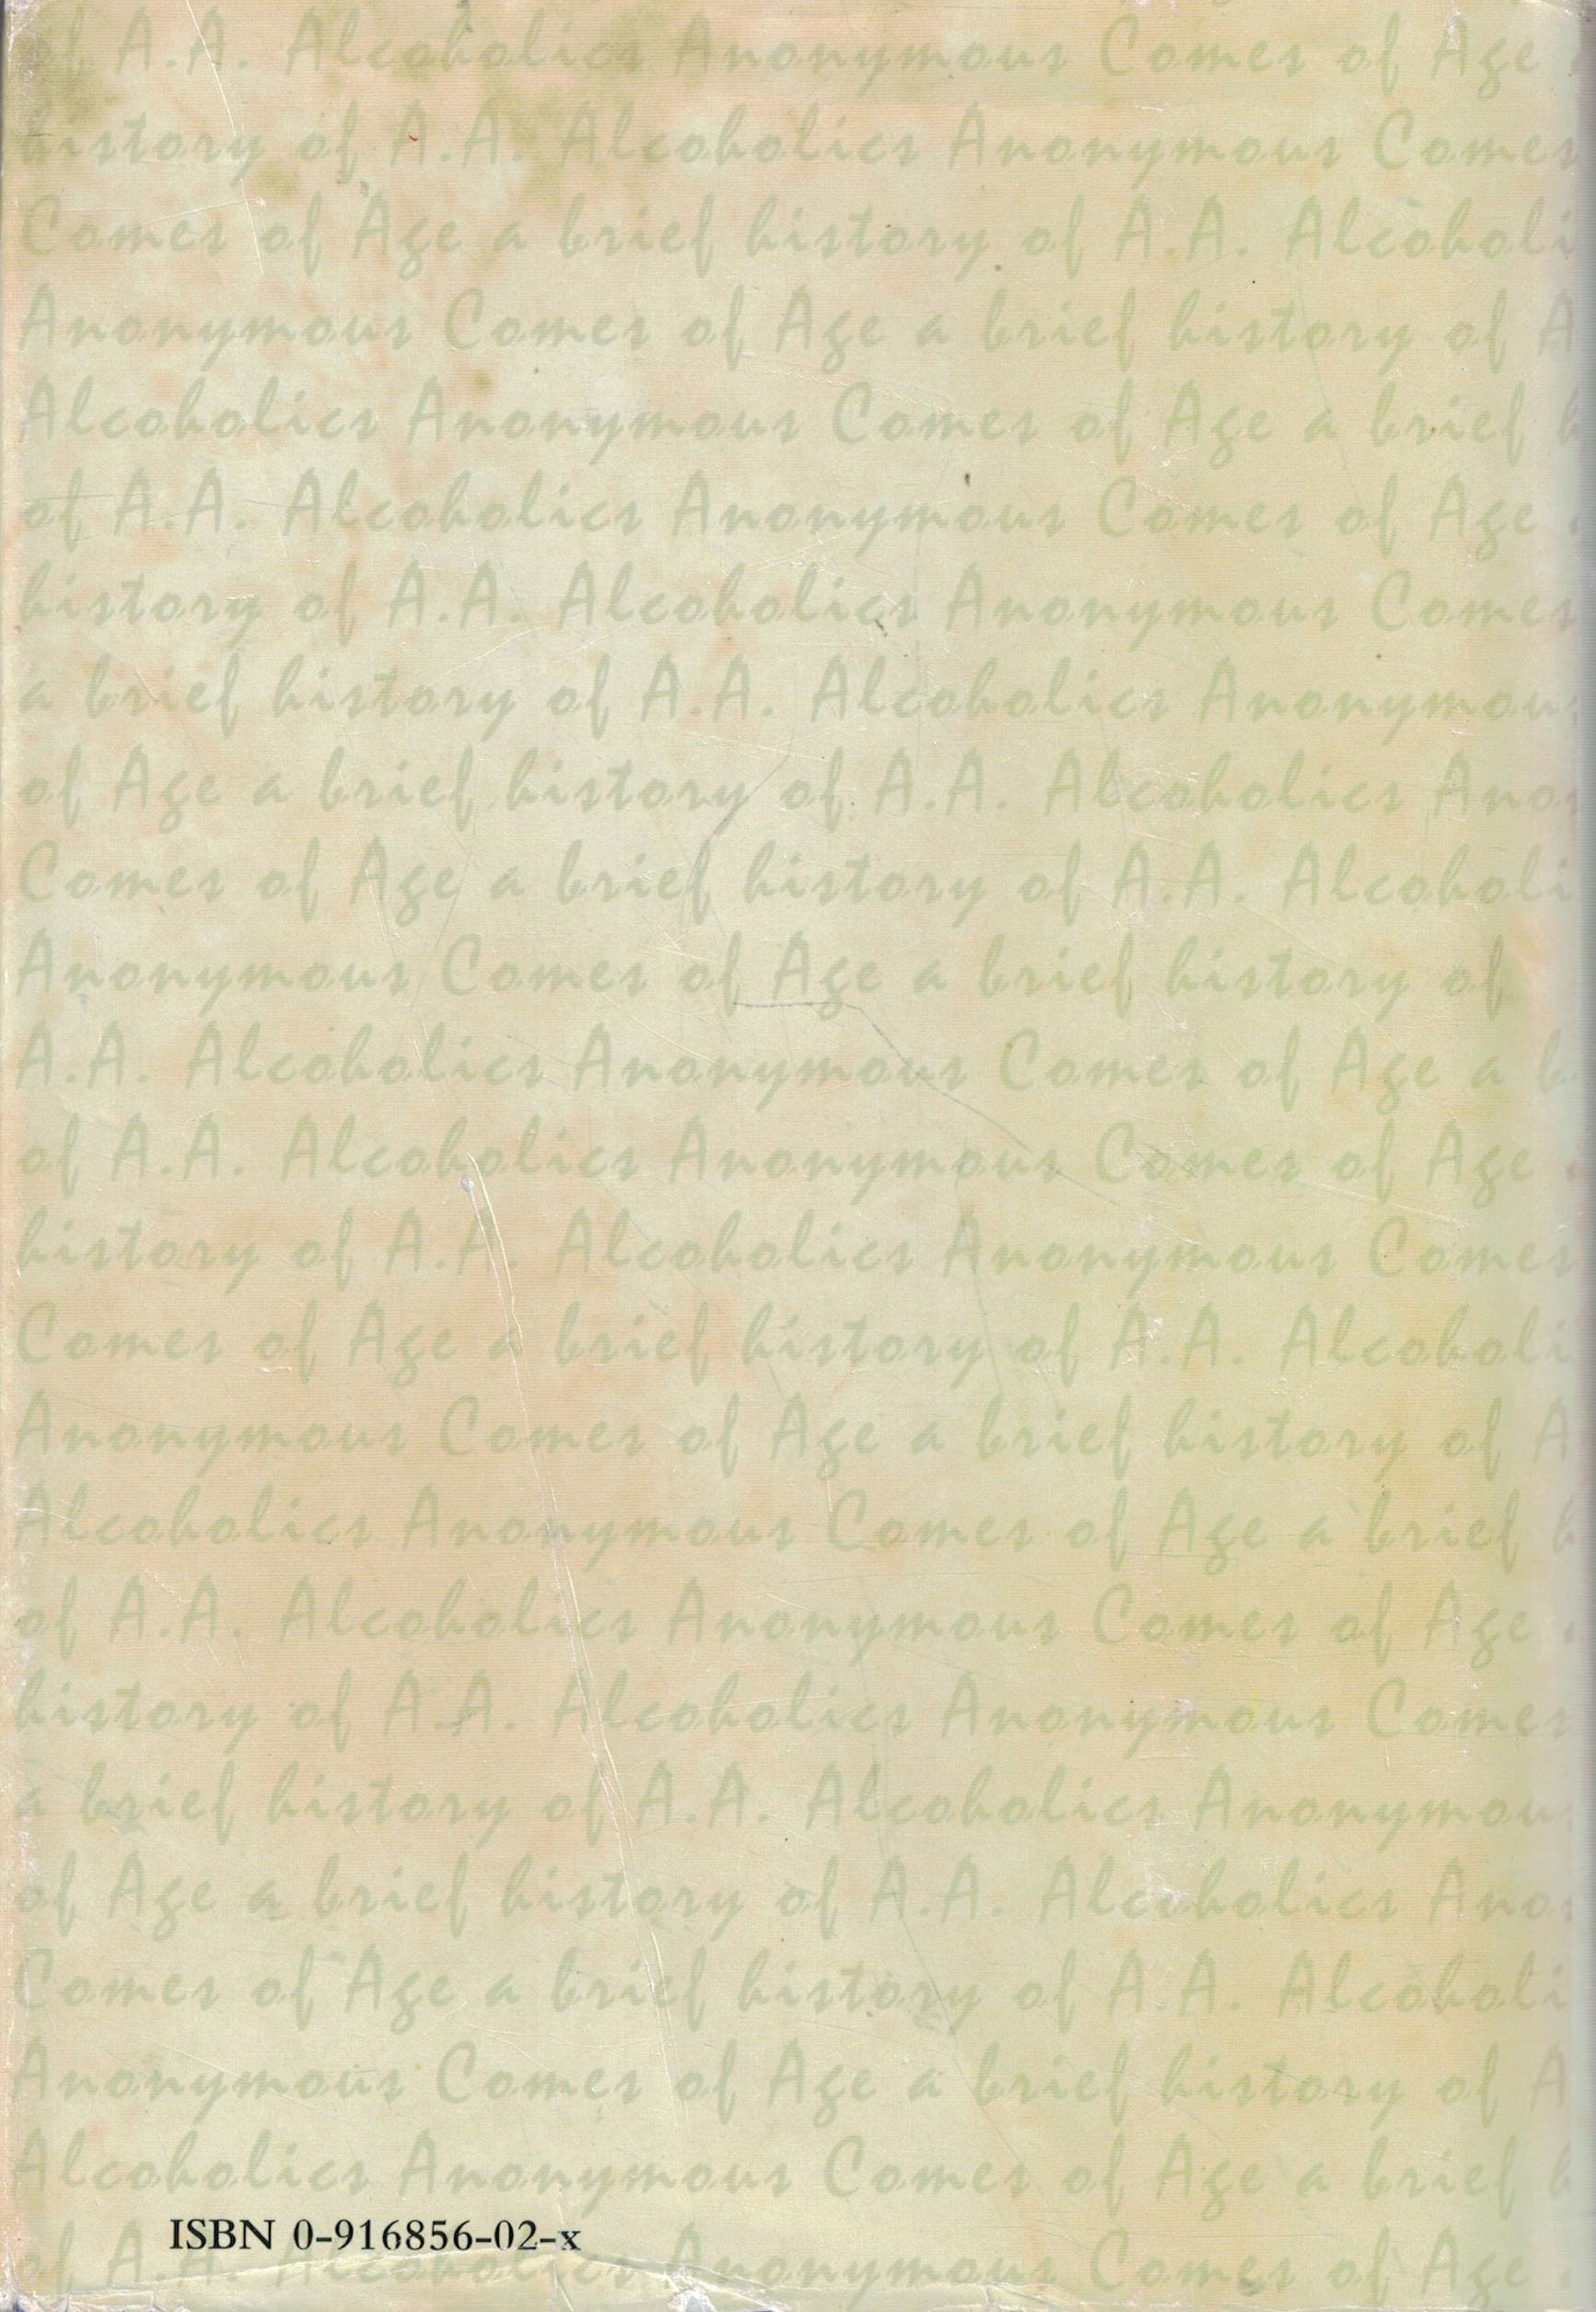 of A.A. Alcoholics Anonymous Comes of Age
history of A.A. Alcoholics Anonymous Comes
Comes of Age a brief history of A.A. Alcoholi
Anonymous Comes of Age a brief history of A
Alcoholics Anonymous Comes of Age a brief h
of A.A. Alcoholics Anonymous Comes of Age
history of A.A. Alcoholics Anonymous Comes
a brief history of A.A. Alcoholics Anonymous
of Age a brief history of A.A. Alcoholics Ano
Comes of Age a brief history of A.A. Alcoholi
Anonymous Comes of Age a brief history of
A.A. Alcoholics Anonymous Comes of Age a b
of A.A. Alcoholics Anonymous Comes of Age
history of A.A. Alcoholics Anonymous Comes
Comes of Age a brief history of A.A. Alcoholi
Anonymous Comes of Age a brief history of A
Alcoholics Anonymous Comes of Age a brief h
of A.A. Alcoholics Anonymous Comes of Age
history of A.A. Alcoholics Anonymous Comes
a brief history of A.A. Alcoholics Anonymous
of Age a brief history of A.A. Alcoholics Ano
Comes of Age a brief history of A.A. Alcoholi
Anonymous Comes of Age a brief history of A
Alcoholics Anonymous Comes of Age a brief h
ISBN 0-916856-02-x
of A.A. Alcoholics Anonymous Comes of Age